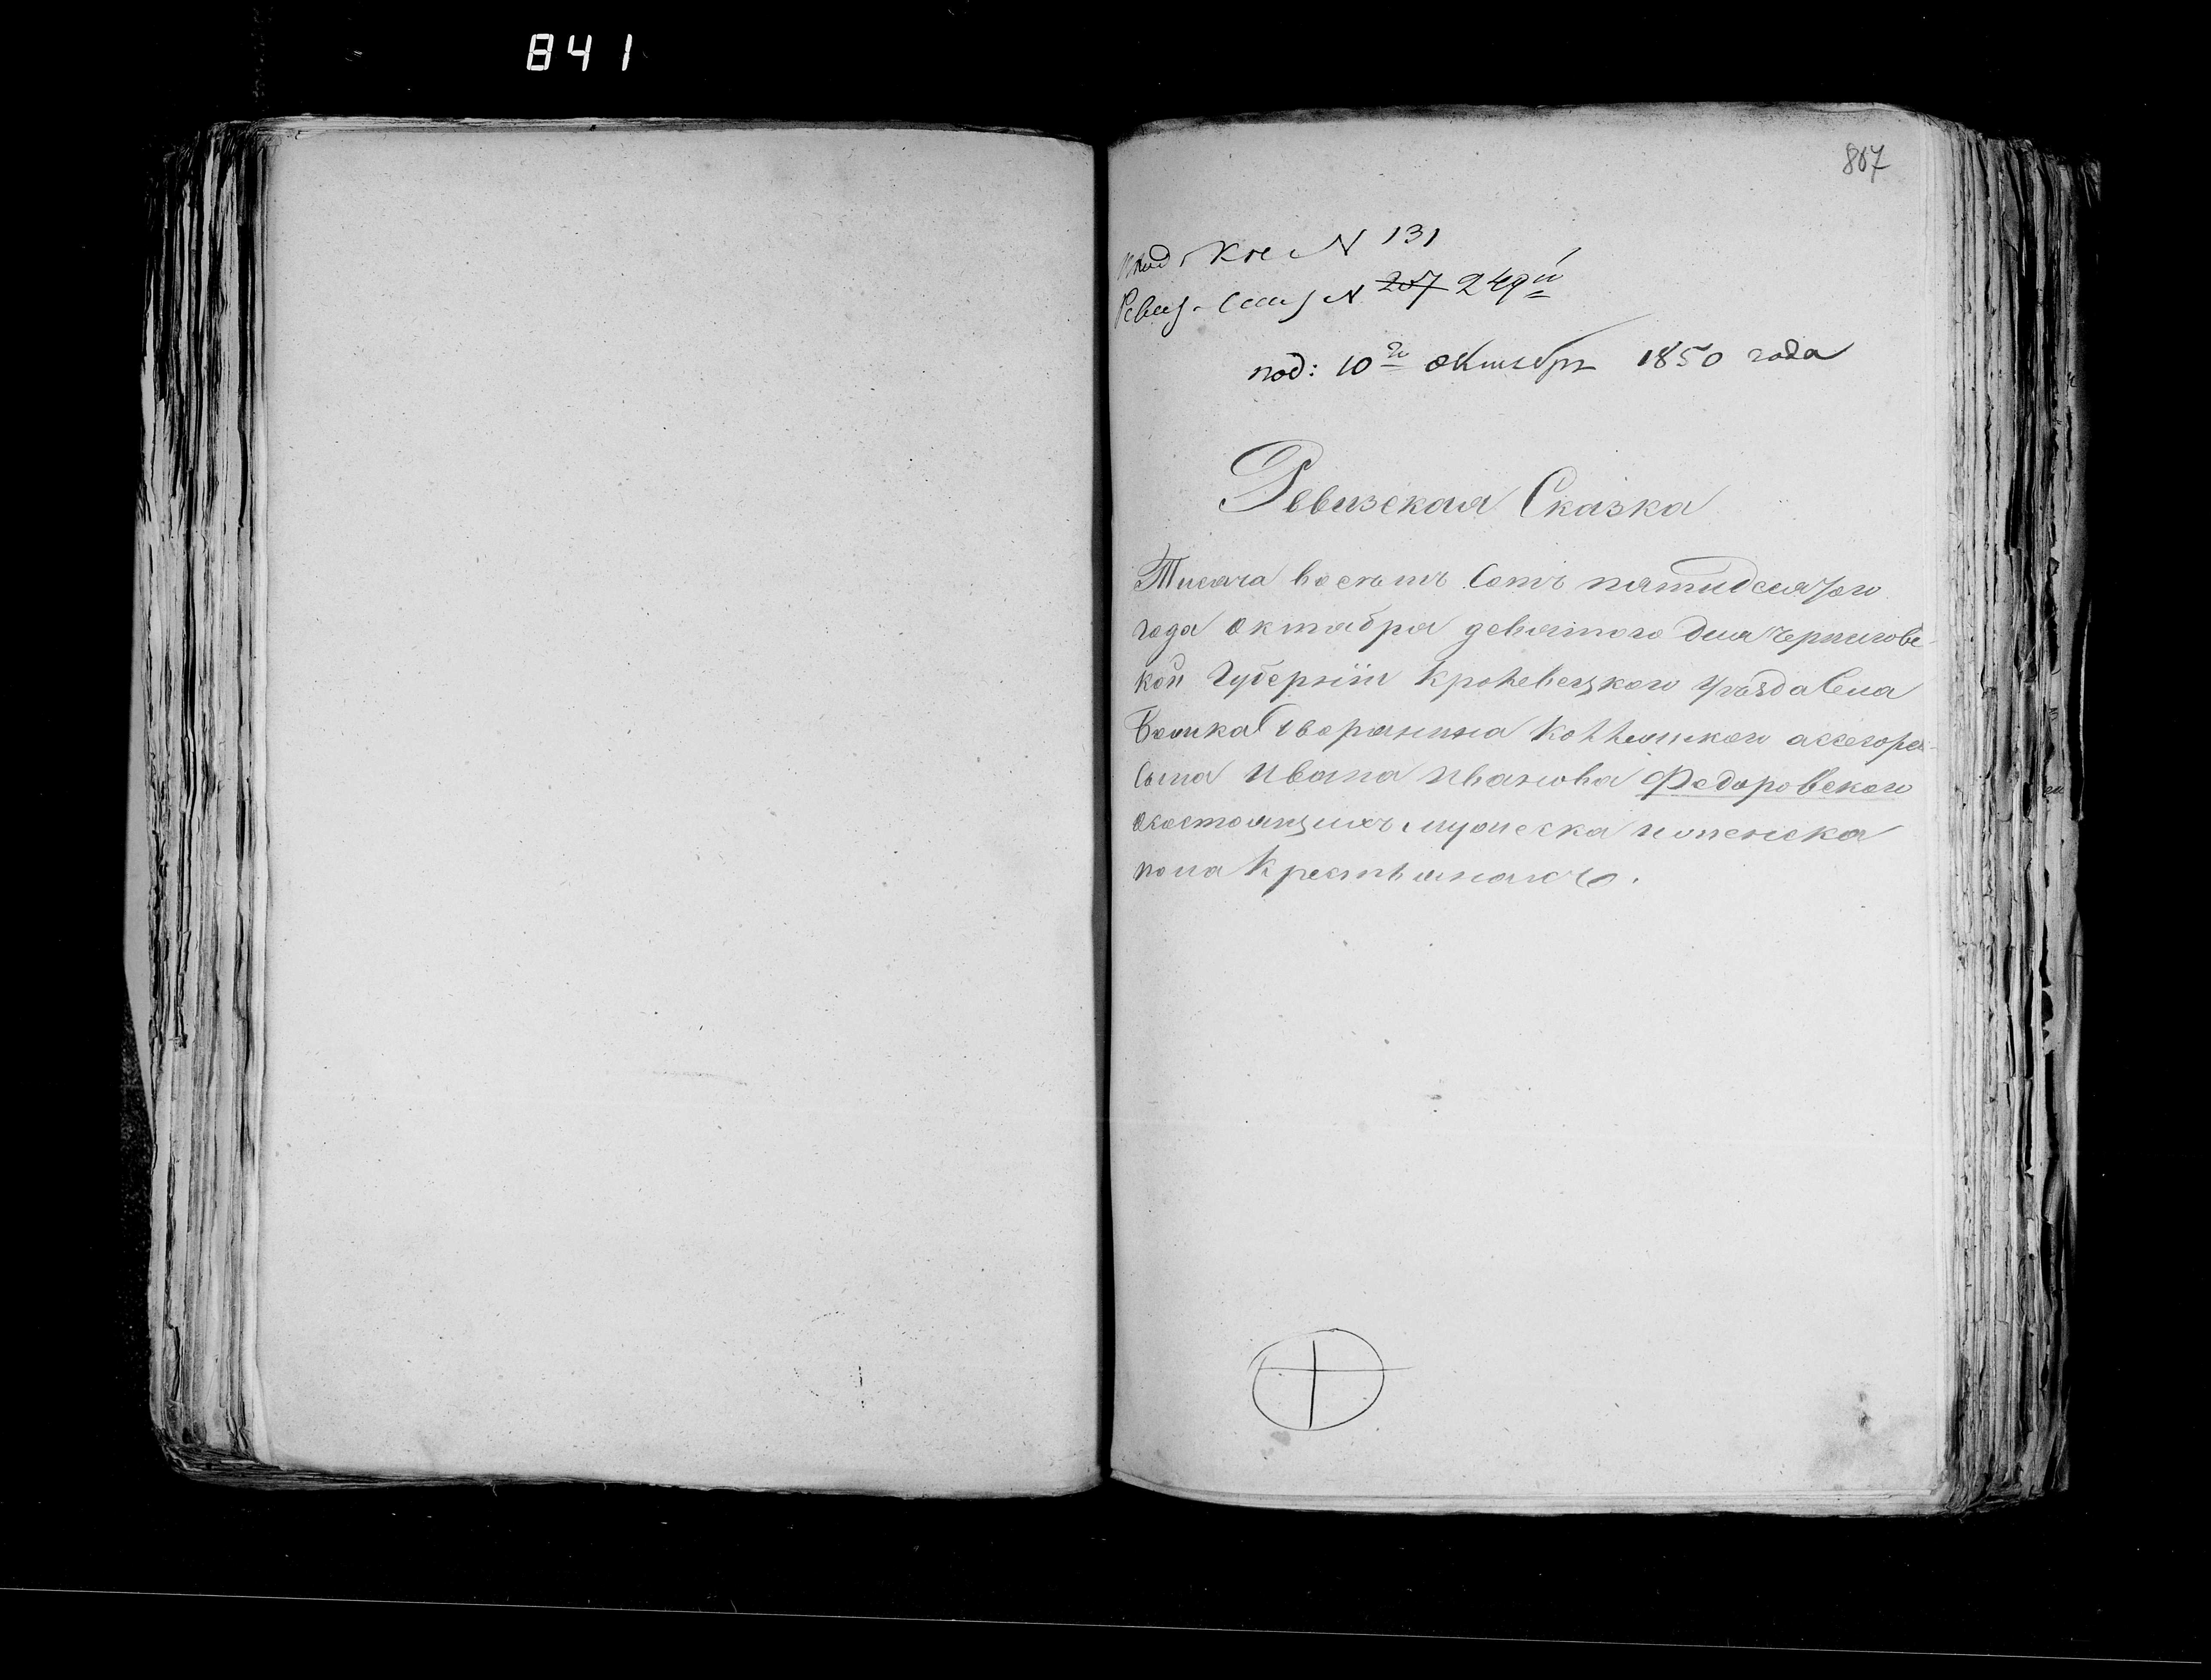 841
807
Кн N 131
Ревиз. N 207 249й
под: 10го Октября 1850 года
Ревизская Сказка
Тисяча восемь Сотъ пятидесятого
года Октабра девятого дня Чернигов-
кой Губернiи Кролевецкого Уѣзда Села
Дворянина Коллежского ассесора
Сына Ивана Иванова Федоровского
осостоящихъ мужеска иженска
пола Крестьянахъ.